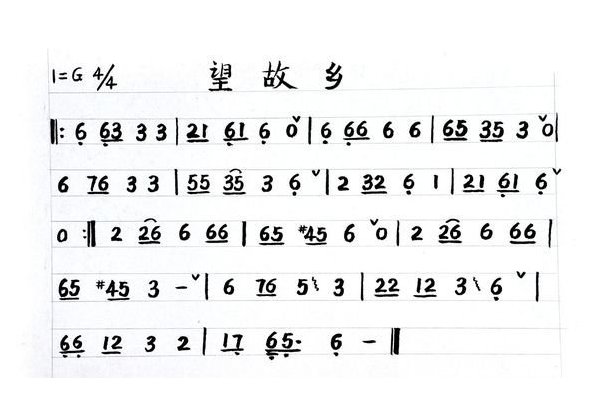 1=G 4/4 望故乡
‖: 6̣ 6̣3 3 3 | 21 6̣1 6̣ 0ˇ | 6̣ 6̣6 6 6 | 65 35 3 ˇ0 |
6 76 3 3 | 55 35 3 6̣ ˇ | 2 32 6̣ 1 | 21 6̣1 6̣ ˇ
0 :‖ 2 26 6 66 | 65 #45 6 ˇ0 | 2 26 6 66 |
65 #45 3 -ˇ | 6 76 5 3 | 22 12 3 6̣ ˇ |
6̣6̣ 12 3 2 | 17̣ 6̣5̣· 6̣ - ‖